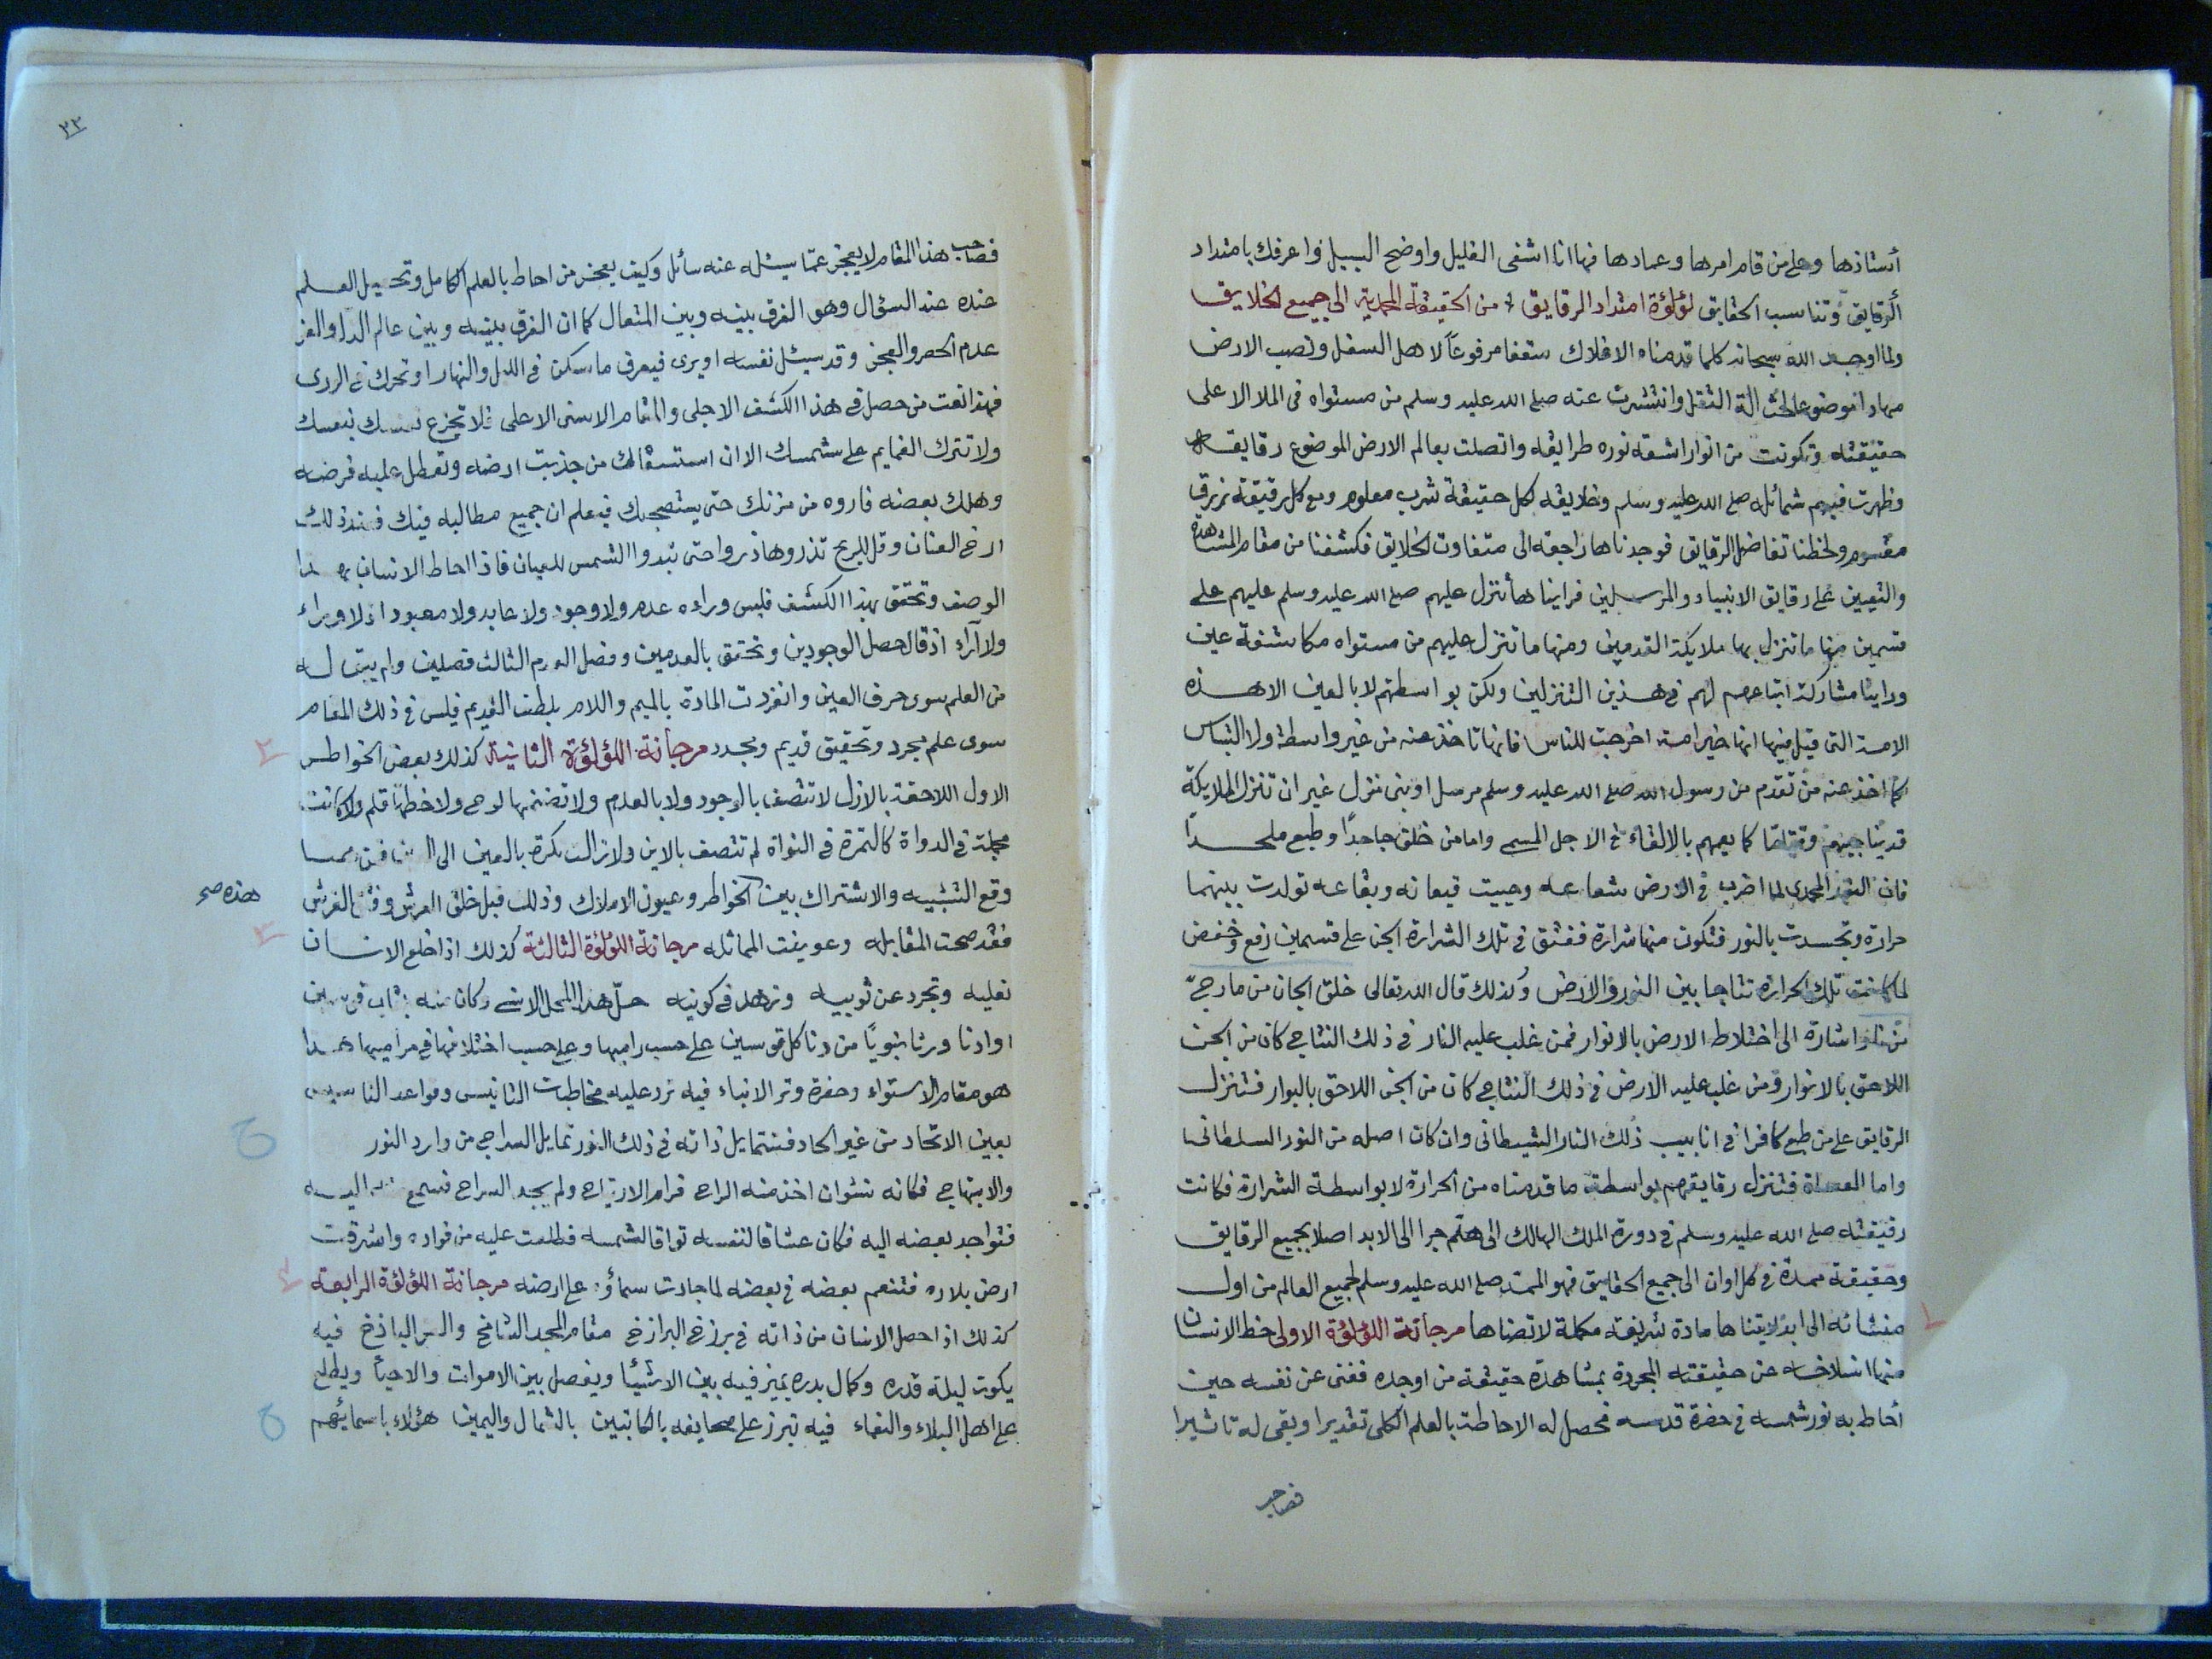 أستاذها وعلى من قام امرها وعمادها فها انا اشفى الغليل واوضح السبيل واعرفك بامتداد
الرقايق وتناسب الحقايق لؤلؤة امتداد الرقايق من الحقيقة المحمدية الى جميع الخلايق
ولما اوجد الله سبحانه كلما قدمناه الافلاك سقفا مرفوعاً لاهل السفل ونصب الارض
مهادا موضوعا لحثالة الثقل وانتشرت عنه صلى الله عليه وسلم من مستواه فى الملا الاعلى
حقيقته وتكونت من انوار اشعة نوره طرايقه واتصلت بعالم الارض الموضوع رقايقه
وظهرت فيهم شمائله صلى الله عليه وسلم وخلايقه لكل حقيقة شرب معلوم ومع كل رقيقة رزق
مقسوم ولحظنا تفاضل الرقايق فوجدناها راجعة الى متفاوت الخلايق فكشفنا من مقام المشاهدة
والتعيين على رقايق الانبياء والمرسلين فراينا هأتنزل عليهم صلى الله عليه وسلم عليهم على
قسمين منها ما تنزل بها ملايكة القدمين ومنها ما تنزل عليهم من مستواه مكاشفة عين
وراينا مشاركة اتباعهم لهم فى هذين التنزلين ولكن بواسطتهم لا بالعين الا هذه
الامة التى قيل فيها انها خير امة اخرجت للناس فانها تاخذ عنه من غير واسطة ولا التباس
كما اخذ عنه من تقدم من رسول الله صلى الله عليه وسلم مرسل او نبى نزل غير ان تنزل الملايكة
قد يفاجيهم وقتا ما كما يعمهم بالالقاء فى الاجل المسمى واما من خلق جاحدًا وطبع ملحداً
فان النور المحمدى لما اضرب فى الارض شعاعه وحميت قيعانه وبقاعه تولدت بينهما
حرارة وتجسدت بالنور فتكون منها شرارة ففتق فى تلك الشرارة الجن على قسمين رفع وخفض
لما كانت تلك الحرارة نتاجا بين النور والارض ولذلك قال الله تعالى خلق الجان من مارج
من نار اشارة الى اختلاط الارض بالانوار فمن غلب عليه النار فى ذلك النتاج كان من الجن
اللاحق بالانوار ومن غلب عليه الارض فى ذلك النتاج كان من الجن اللاحق بالبوار فتنزل
الرقايق على من طبع كافرا فى انابيب ذلك النار الشيطانى وان كان اصله من النور السلطانى
واما العصاة فتنزل رقايقهم بواسطة ما قدمناه من الحرارة لا بواسطة الشرارة فكانت
رقيقته صلى الله عليه وسلم فى دورة الملك الهالك الى هلم جرا الى الابد اصلا بجميع الرقايق
وحقيقة ممدة فى كل اوان الى جميع الحقايق فهو الممد صلى الله عليه وسلم لجميع العالم من اول
منشائه الى ابد لايتناها مادة شريفة مكملة لاتضاها مرجانة اللؤلؤة الاولى حظ الانسان
منها انسلاخه عن حقيقته المجردة بمشاهدة حقيقة من اوجده ففنى عن نفسه حين
أحاط به نور شمسه فى حضرة قدسه فحصل له الاحاطة بالعلم الكلى تقديرا وبقى له تاثيرا
فصاحب
٣٣
فصاحب هذا المقام لا يعجز عما يسئله عنه سائل وكيف يعجز من احاط بالعلم الكامل وتحصيل العلم
عنده عند السؤال وهو الفرق بينه وبين المتعال كما ان الفرق بينه وبين عالم
عدم الحصر والعجز وقد سيئل نفسه او يرى فيعرف ما سكن فى الليل والنهار او تحرك فى الردى
فهذا نعت من حصل فى هذا الكشف الاجلى والمقام الاسنى الاعلى فلا تجزع نفسك بنفسك
ولا تترك الغمايم على شمسك الا ان استسقالك من جذبت ارضه وتعطل عليه فرضه
وهلك بعضه فاروه من مزنك حتى يستصحيك فيعلم ان جميع مطالبه فيك فعند ذلك
ارخ العنان وقل للريح تذروها ذروا حتى تبدوا الشمس للعيان فاذا احاط الانسان بهذا
الوصف وتحقق بهذا الكشف فليس وراءه عدم ولا وجود ولا عابد ولا معبود اذ لا وراء
ولا آراء اذ قال حصل الوجودين وتحقق بالعدمين وفصل العدم الثالث فصلين ولم يبق له
من العلم سوى حرف العين وانفردت المادة بالميم واللام بلطف القديم فليس فى ذلك المقام
سوى علم مجرد وتحقيق قديم ومجدد مرجانة اللؤلؤة الثانية كذلك بعض الخواطر
الاول اللاحقة بالازل لا تتصف بالوجود ولا بالعدم ولا تضمنها لوح ولا خطها قلم ولا كانت
مجملة فى الدواة كالتمرة فى النواة لم تتصف بالاين ولازالت نكرة بالعين الى
وقع التشبيه والاشتراك بين الخواطر وعيون الاملاك وذلك قبل خلق العرش وفتق الفرش
هذه صح
فقد صحت المقابلة وعوينت المماثله مرجانة اللؤلؤة الثالثة كذلك اذا خلع الانسان
نعليه وتجرد عن ثوبيه وزهد فى كونيه حلّ هذا المحل الاسنى وكان منه بقاب قوسين
او ادنا ورثا نبويًا من دنا كل قوسين على حسب راميها وعلى حسب اختلافها فى مراميها هذا
هو مقام الاستواء وحضرة وتر الانباء فيه ترد عليه مخاطبات التانيس وقواعد التاسيس
بعين الاتحاد من غير الحاد فتتمايل ذاته فى ذلك النور تمايل السراج من وارد النور
والابتهاج فكانه نشوان اخذ منه الراح فرام الارتياح ولم يجد السراح فسمع
فتواجد بعضه اليه فكان عشاقا لنفسه تواقا لشمسه فطلعت عليه من فواده واشرقت
ارض بلاده فتنعم بعضه فى بعضه لما جادت سماؤه على ارضه مرجانة اللؤلؤة الرابعة
كذلك اذا حصل الانسان من ذاته فى برزخ البرازخ مقام المجد الشامخ الباذخ فيه
يكون ليلة قدره وكمال بدره يميز فيه بين الاشيا ويفصل بين الاموات والاحيا ويطلع
على اهل البلاء والنعماء فيه تبرز على صحايفه بالكاتبين بالشمال واليمين هؤلاء باسمائهم